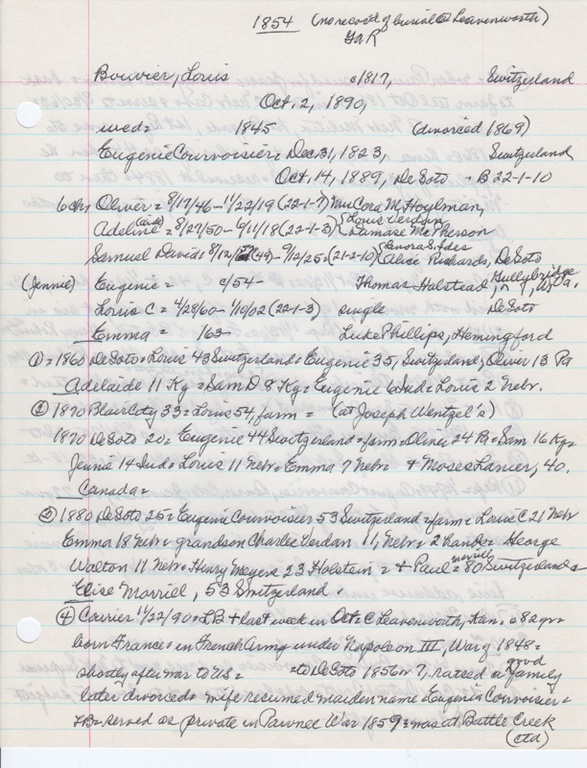 1854 (no record of burial @ Leavenworth)
GaR
Bouvier, Louis c1817, Switzerland
Oct. 2, 1890,
wed = 1845 (divorced 1869)
Eugenie Courvoisier = Dec. 31, 1823, Switzerland
Oct. 14, 1889, DeSoto - B 22-1-10
6 ch, Oliver = 8/17/46 - 11/22/19 (22-1-7) Mrs Cora M. Hoylman,
Adeline = 8/27/50 - 9/11/18 (22-1-3) { Louis Verdan, Damase McPherson
Samuel David = 8/12/ (49) - 9/12/25 = (21-2-10) { Lenora Snides Alice Richards, DeSoto
(Jennie) Eugenie = c/54 - Thomas Halstead, Gulleybridge, W. Va.
Louis C = 4/29/60 - 1/10/02 (22-1-3) single DeSoto
Emma = 163 - Luke Phillips, Hemingford
① = 1860 DeSoto = Louis 43 Switzerland = Eugenie 35, Switzerland, Oliver 13 Pa
Adelaide 11 Ky = Sam D 8 Ky = Eugenie 6 Ind = Louis 2 Nebr.
② 1870 Blair City 33 = Louis 54, farm = (at Joseph Wentzel's)
1870 DeSoto 20 = Eugenie 44 Switzerland = farm = Oliver 24 Pa = Sam 16 Ky =
Jennie 14 Ind = Louis 11 Nebr = Emma 7 Nebr = + Moses Lanier, 40,
Canada =
③ 1880 DeSoto 25 = Eugenie Courvoisier 53 Switzerland = farm = Louis C 21 Nebr
Emma 18 Nebr = grandson Charles Verdan 11, Nebr = 2 hands = George
Walton 11 Nebr = Henry Meyers 23 Holstein = + Paul Morriel = 80 Switzerland =
Elise Morriel, 53 Switzerland.
④ Courier 11/22/90 = LB + last week in Oct @ Leavenworth, Kan. = a 82 yr =
born France = in French Army under Napoleon III, War of 1848 =
shortly after war to US = = to DeSoto 1856 or 7, raised a good family
later divorced = wife resumed maiden name Eugenia Courvoisier =
LB = served as private in Pawnee War 1859 = was at Battle Creek
(ctd)